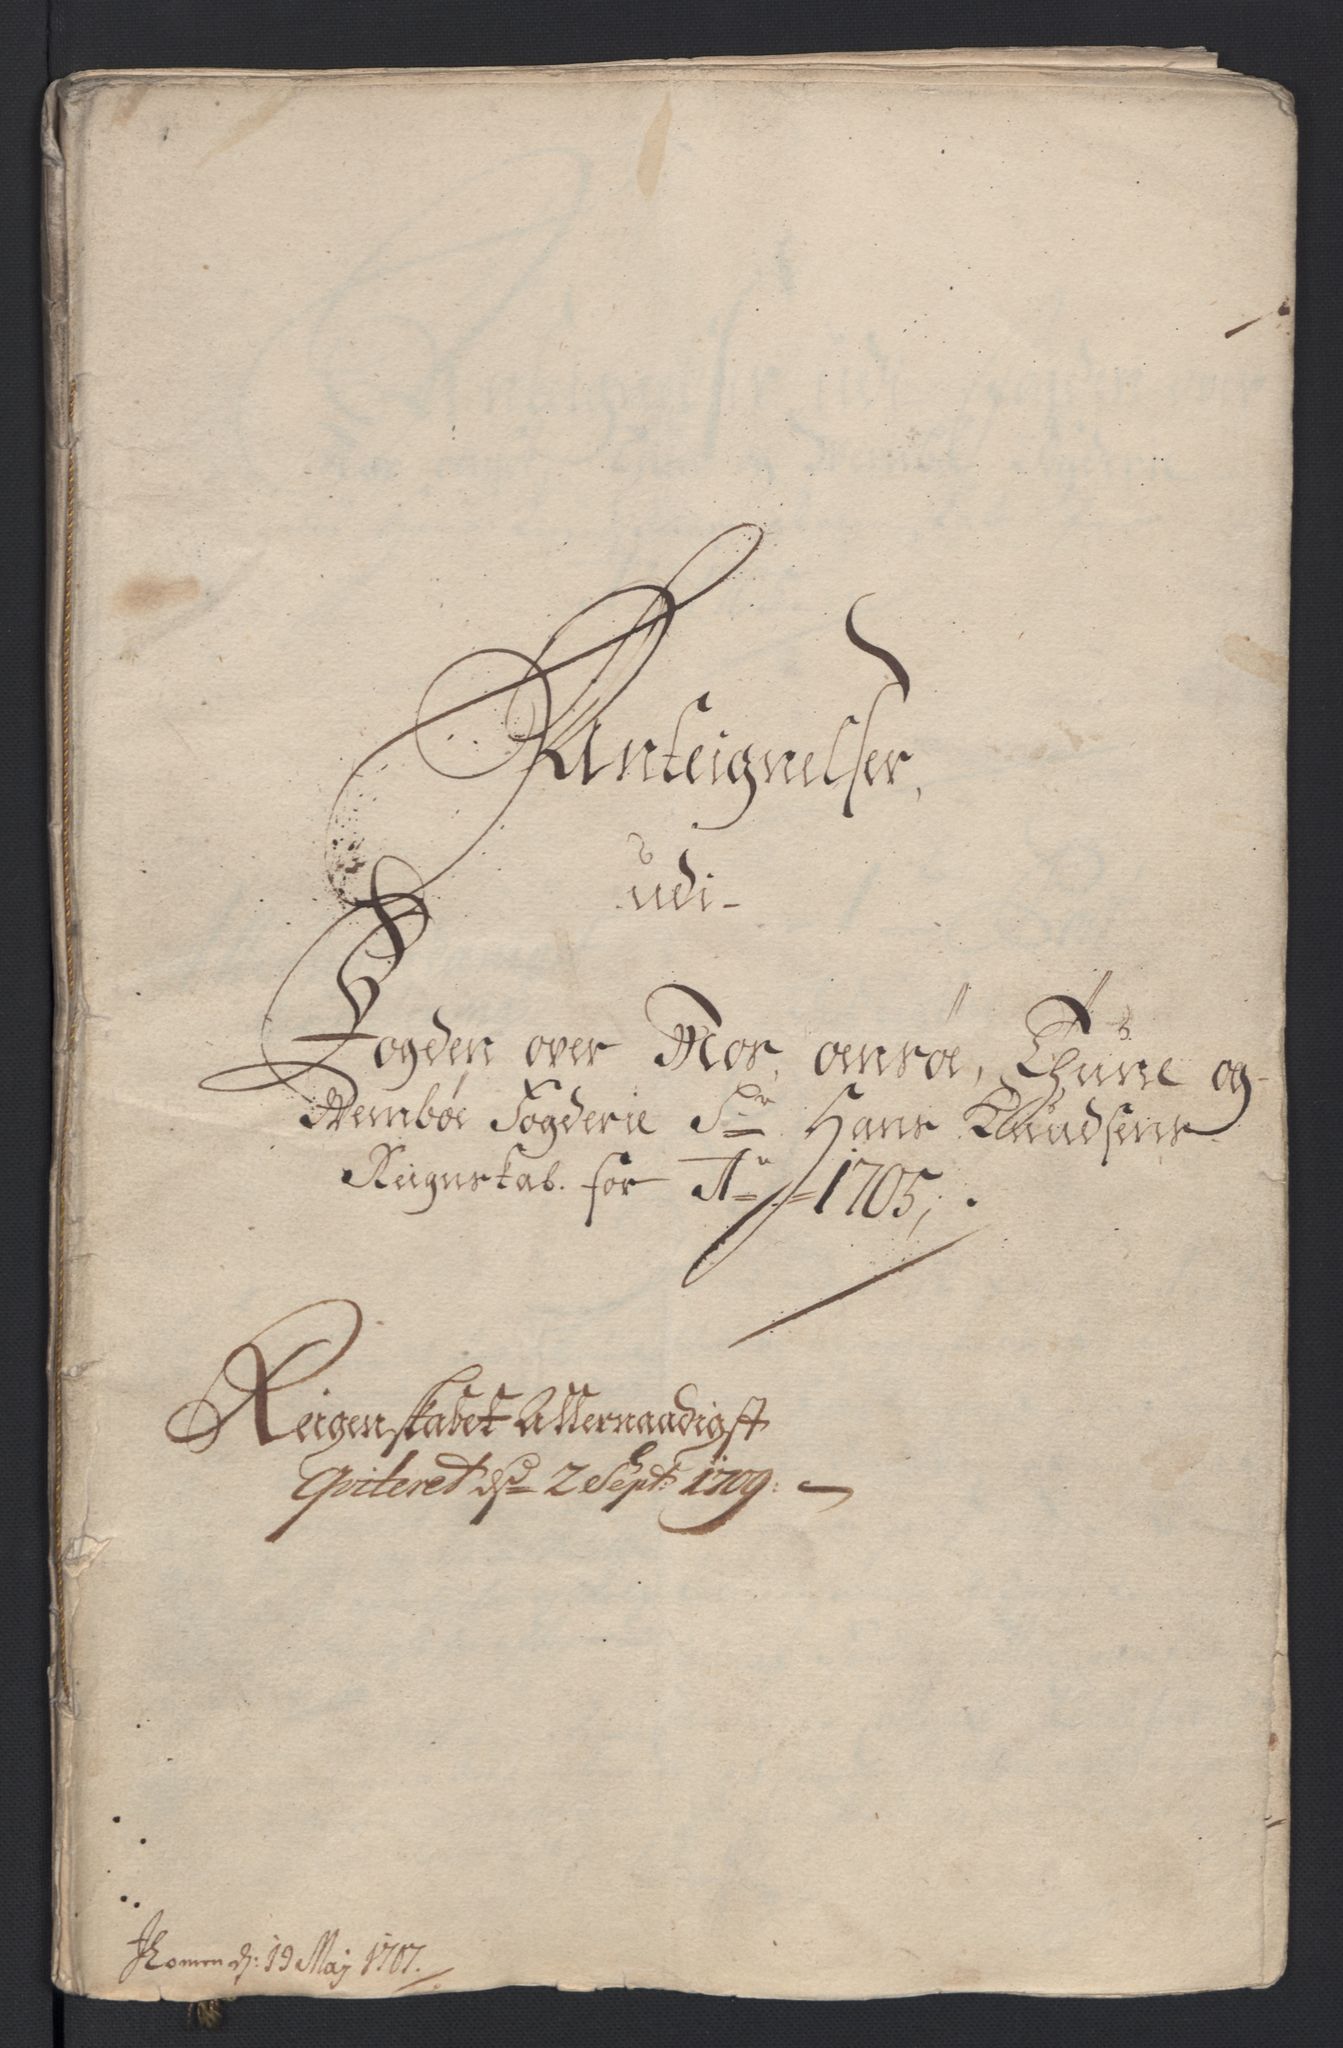 Anteignelser,
udi
Fogden over Mos, onsøe, Thune og
Wembøe Fogderie Sr Hans Knudsens
Reignskab. for Ao 1705,
Reigenskabet Allernaadigst
Qviteret dn 2 Sept: 1709.
Jkomen d: 19 Maj 1707.